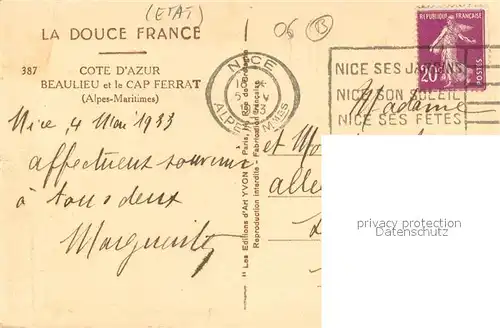 (ETAT)
06 B
LA DOUCE FRANCE
387
COTE D'AZUR
BEAULIEU et le CAP FERRAT
(Alpes-Maritimes)
Nice, 4 Mai 1933
affectueux souvenir
à tous deux
Marguerite
" Les Editions d'Art YVON " Paris,
Reproduction interdite - Fabrication française
NICE
ALPES MMES
REPUBLIQUE FRANÇAISE
20c
POSTES
NICE SES JARDINS
NICE SON SOLEIL
NICE SES FÊTES
Madame
et
alle
privacy protection
Datenschutz